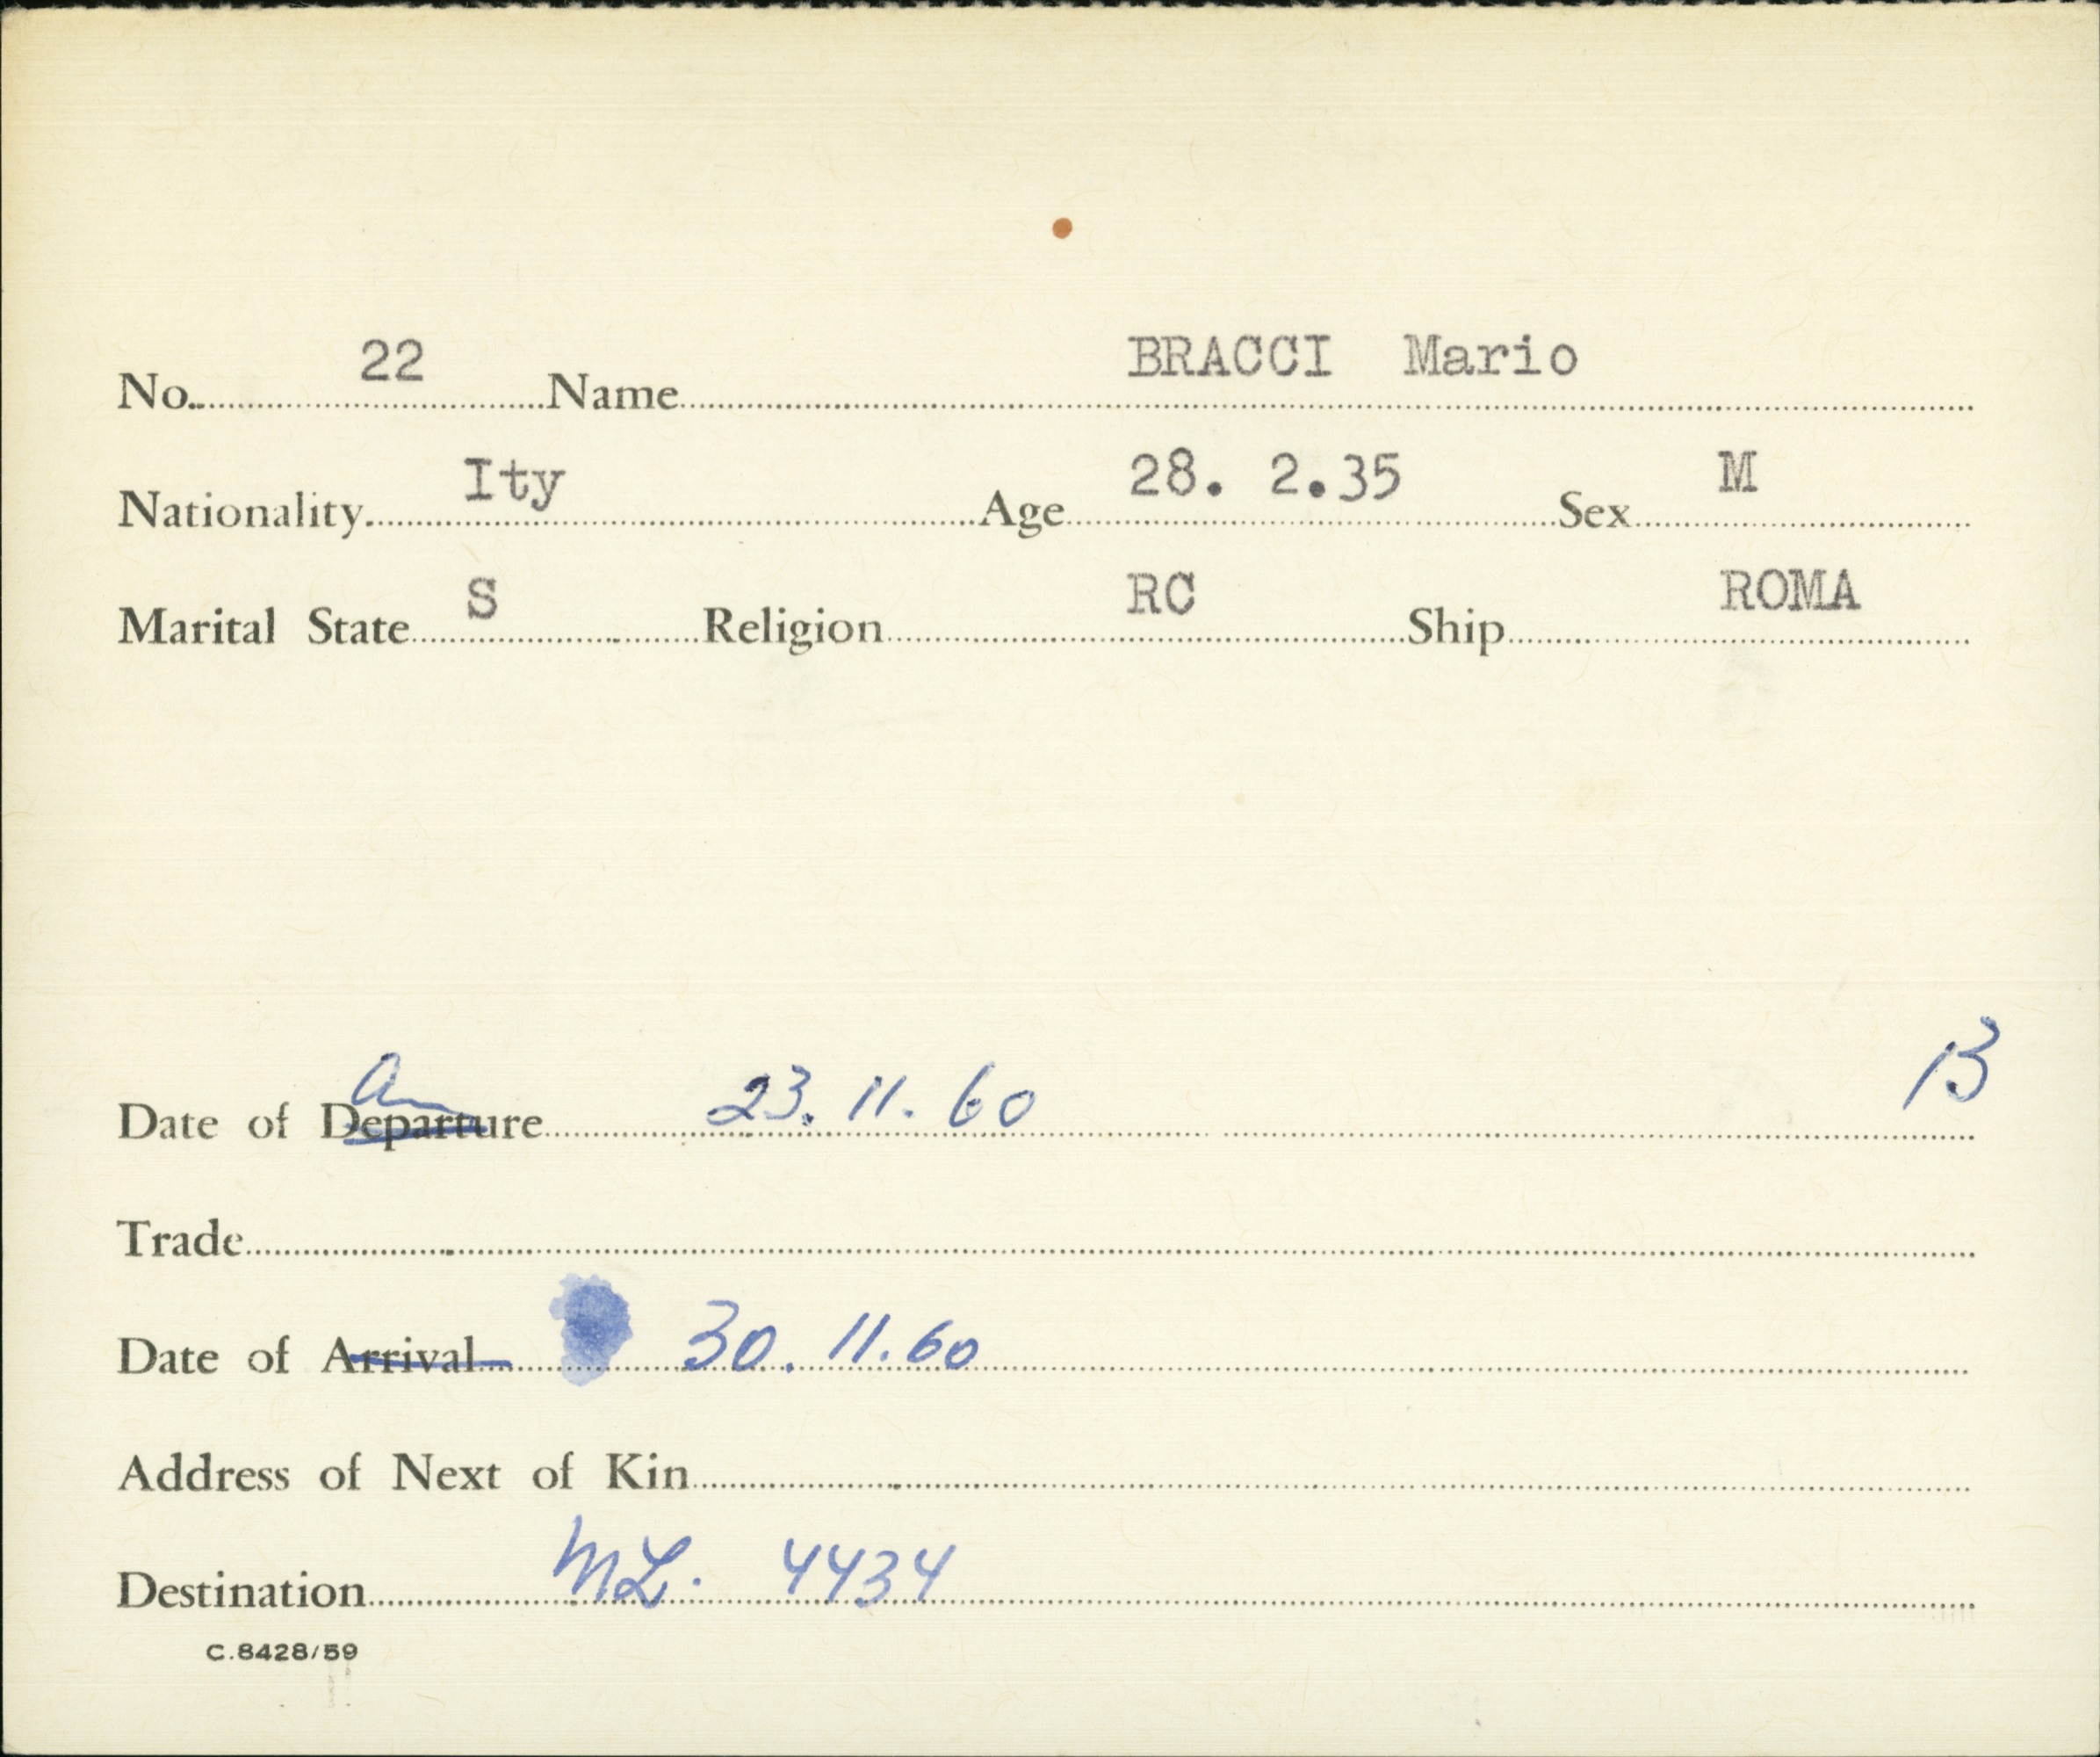 No. 22 Name BRACCI Mario
Nationality Ity Age 28. 2.35 Sex M
Marital State S Religion RC Ship ROMA
Date of Departure 23.11.60 B
Trade
Date of Arrival 30.11.60
Address of Next of Kin
Destination ML. 4434
C.8428/59